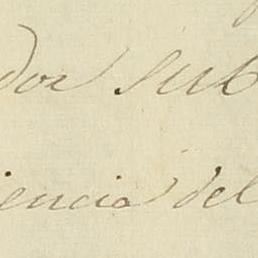 dor sub
iencia del